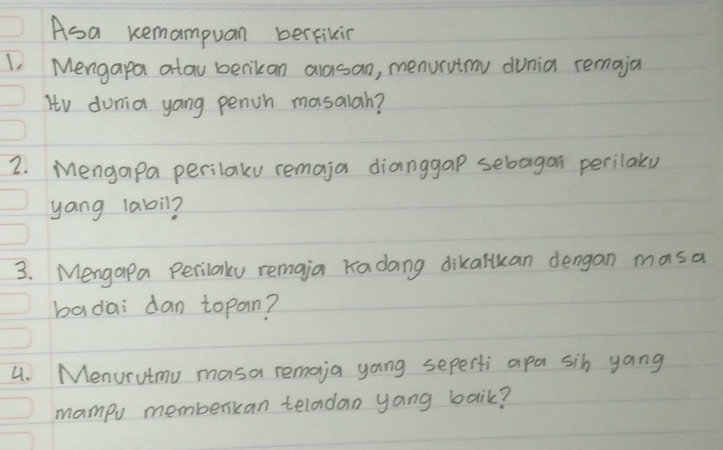 Asa kemampuan berfikir
1. Mengapa atau berikan alasan, menurutmu dunia remaja
itu dunia yang penuh masalah?
2. Mengapa perilaku remaja dianggap sebagai perilaku
yang labil?
3. Mengapa Perilaku remaja kadang dikaitkan dengan masa
badai dan topan?
4. Menurutmu masa remaja yang seperti apa sih yang
mampu memberikan teladan yang baik?